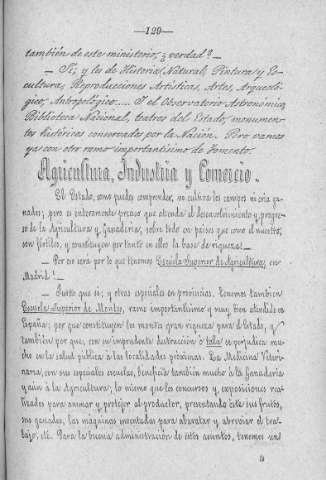 —120—
también de este ministerio, ¿verdad?—
— Sí; y los de Historia Natural, Pintura y Es-
cultura, Reproducciones Artísticas, Artes, Arqueoló-
gico, Antropológico..... Y el Observatorio Astronómico,
Biblioteca Nacional, teatros del Estado, monumen-
tos históricos conservados por la Nación. Pero vamos
ya con otro ramo importantísimo de Fomento.
Agricultura, Industria y Comercio.
El Estado, como puedes comprender, no cultiva los campos ni cria ga-
nados; pero es enteramente preciso que atienda al desenvolvimiento y progre-
so de la Agricultura y Ganadería, sobre todo en paises que como el nuestro,
son fértiles, y constituyen por tanto en ellos la base de riqueza.—
— Por eso será por lo que tenemos Escuela Superior de Agricultura, en
Madrid?—
— Justo que sí; y otras especiales en provincias. Tenemos también
Escuela Superior de Montes, ramo importantísimo y muy bien atendido en
España; por que constituyen los montes gran riqueza para el Estado, y
también por que, con su imprudente destrucción ó tala se perjudica mu-
cho en la salud pública á las localidades próximas. La Medicina Veteri-
naria, con sus especiales escuelas, beneficia también mucho á la Ganadería
y aún á la Agricultura; lo mismo que los concursos, y exposiciones rea-
lizados para animar y protejer al productor, presentando éste sus frutos,
sus ganados, las máquinas inventadas para abaratar y abreviar el tra-
bajo, etc. Para la buena administración de estos asuntos, tenemos un